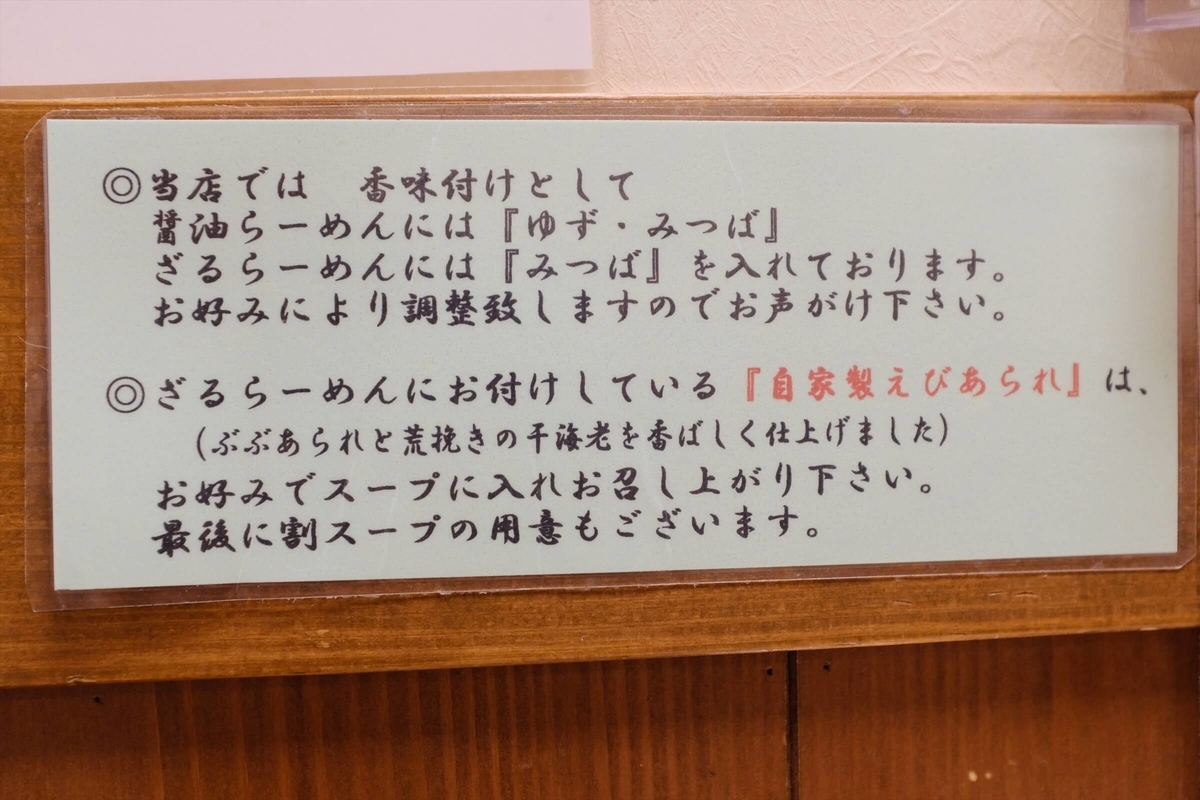 ◎当店では　香味付けとして
醤油らーめんには『ゆず・みつば』
ざるらーめんには『みつば』を入れております。
お好みにより調整致しますのでお声がけ下さい。
◎ざるらーめんにお付けしている『自家製えびあられ』は、
（ぶぶあられと荒挽きの干海老を香ばしく仕上げました）
お好みでスープに入れお召し上がり下さい。
最後に割スープの用意もございます。